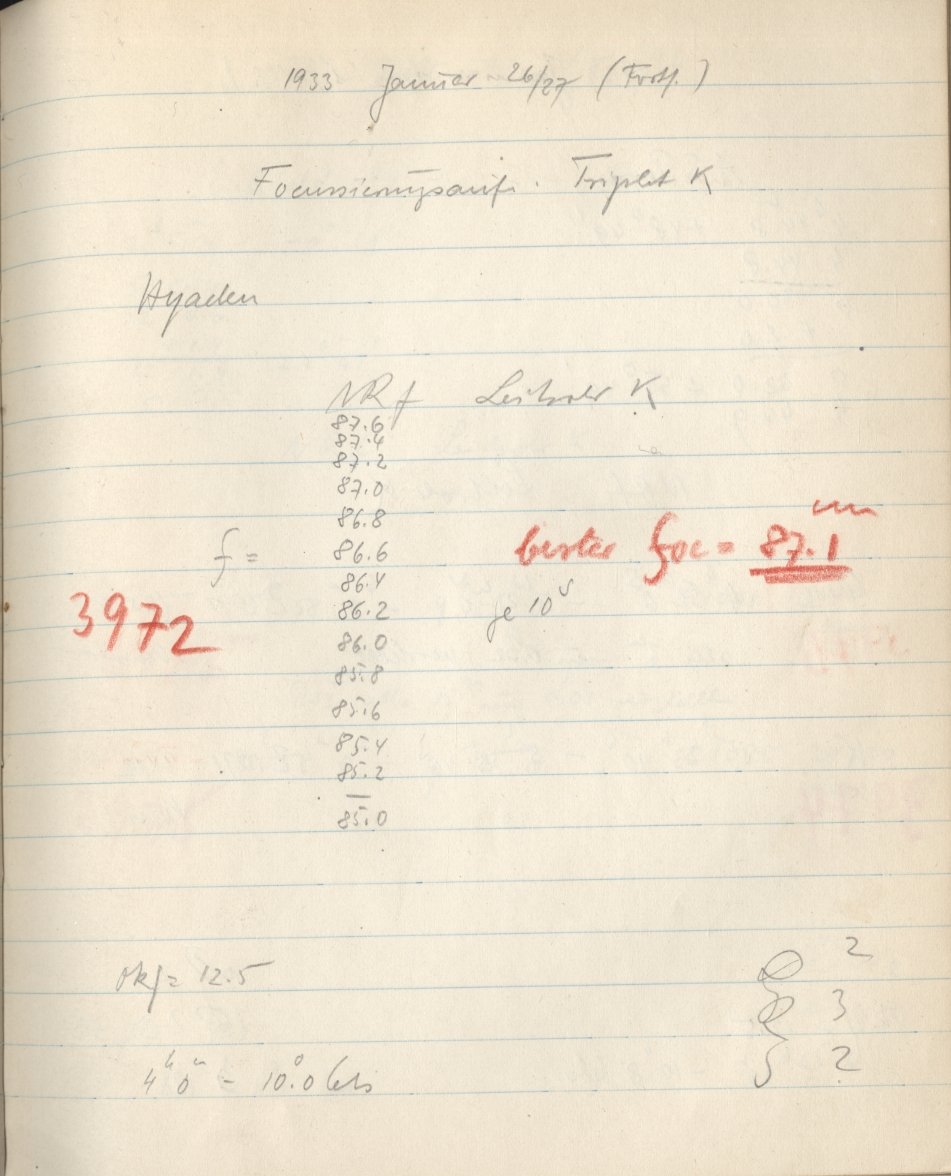 1933 Januar 26/27 (Forts.)
Focussierungsaufn. Triplet K
Hyaden
f Leitrohr K
87.6
87.4
87.2
87.0
86.8
f = 86.6 bester Foc = 87.1 mm
86.4
3972 86.2 je 10s
86.0
85.8
85.6
85.4
85.2
85.0
Okf = 12.5 2
3
4h 0m - 10°.0 Cels 2